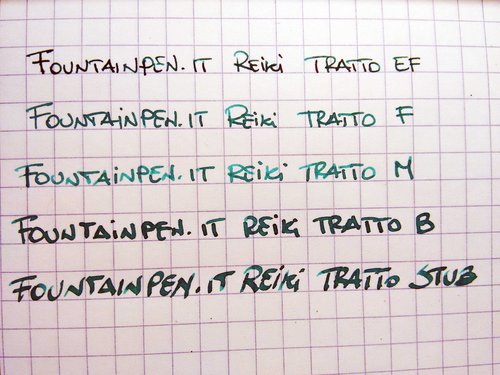 Fountainpen.it Reiki Tratto EF
Fountainpen.it Reiki Tratto F
Fountainpen.it Reiki Tratto M
Fountainpen.it Reiki Tratto B
Fountainpen.it Reiki Tratto Stub